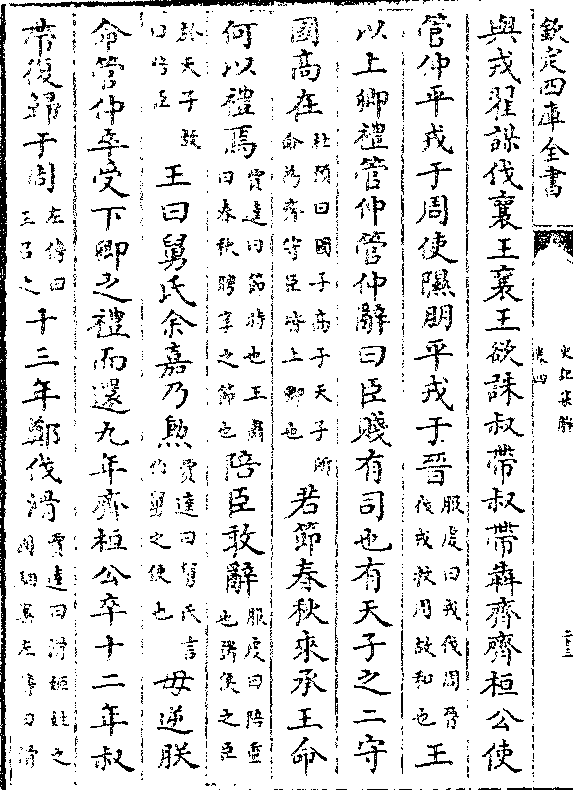 欽定四庫全書
史記集解
卷四
與戎翟謀伐襄王襄王欲誅叔帶叔帶犇齊齊桓公使
管仲平戎于周使隰朋平戎于晉服虔曰戎伐周晉伐戎救周故和也王
以上卿禮管仲管仲辭曰臣賤有司也有天子之二守
國高在杜預曰國子高子天子所命為齊守臣皆上卿也若節春秋來承王命
何以禮焉賈逵曰節時也王肅曰春秋聘享之節也陪臣敢辭服虔曰陪重也諸侯之臣
於天子故曰陪臣王曰舅氏余嘉乃勲賈逵曰舅氏言伯舅之使也毋逆朕
命管仲卒受下卿之禮而還九年齊桓公卒十二年叔
帶復歸于周左傳曰王召之十三年鄭伐滑賈逵曰滑姬姓之國駰案左傳曰滑